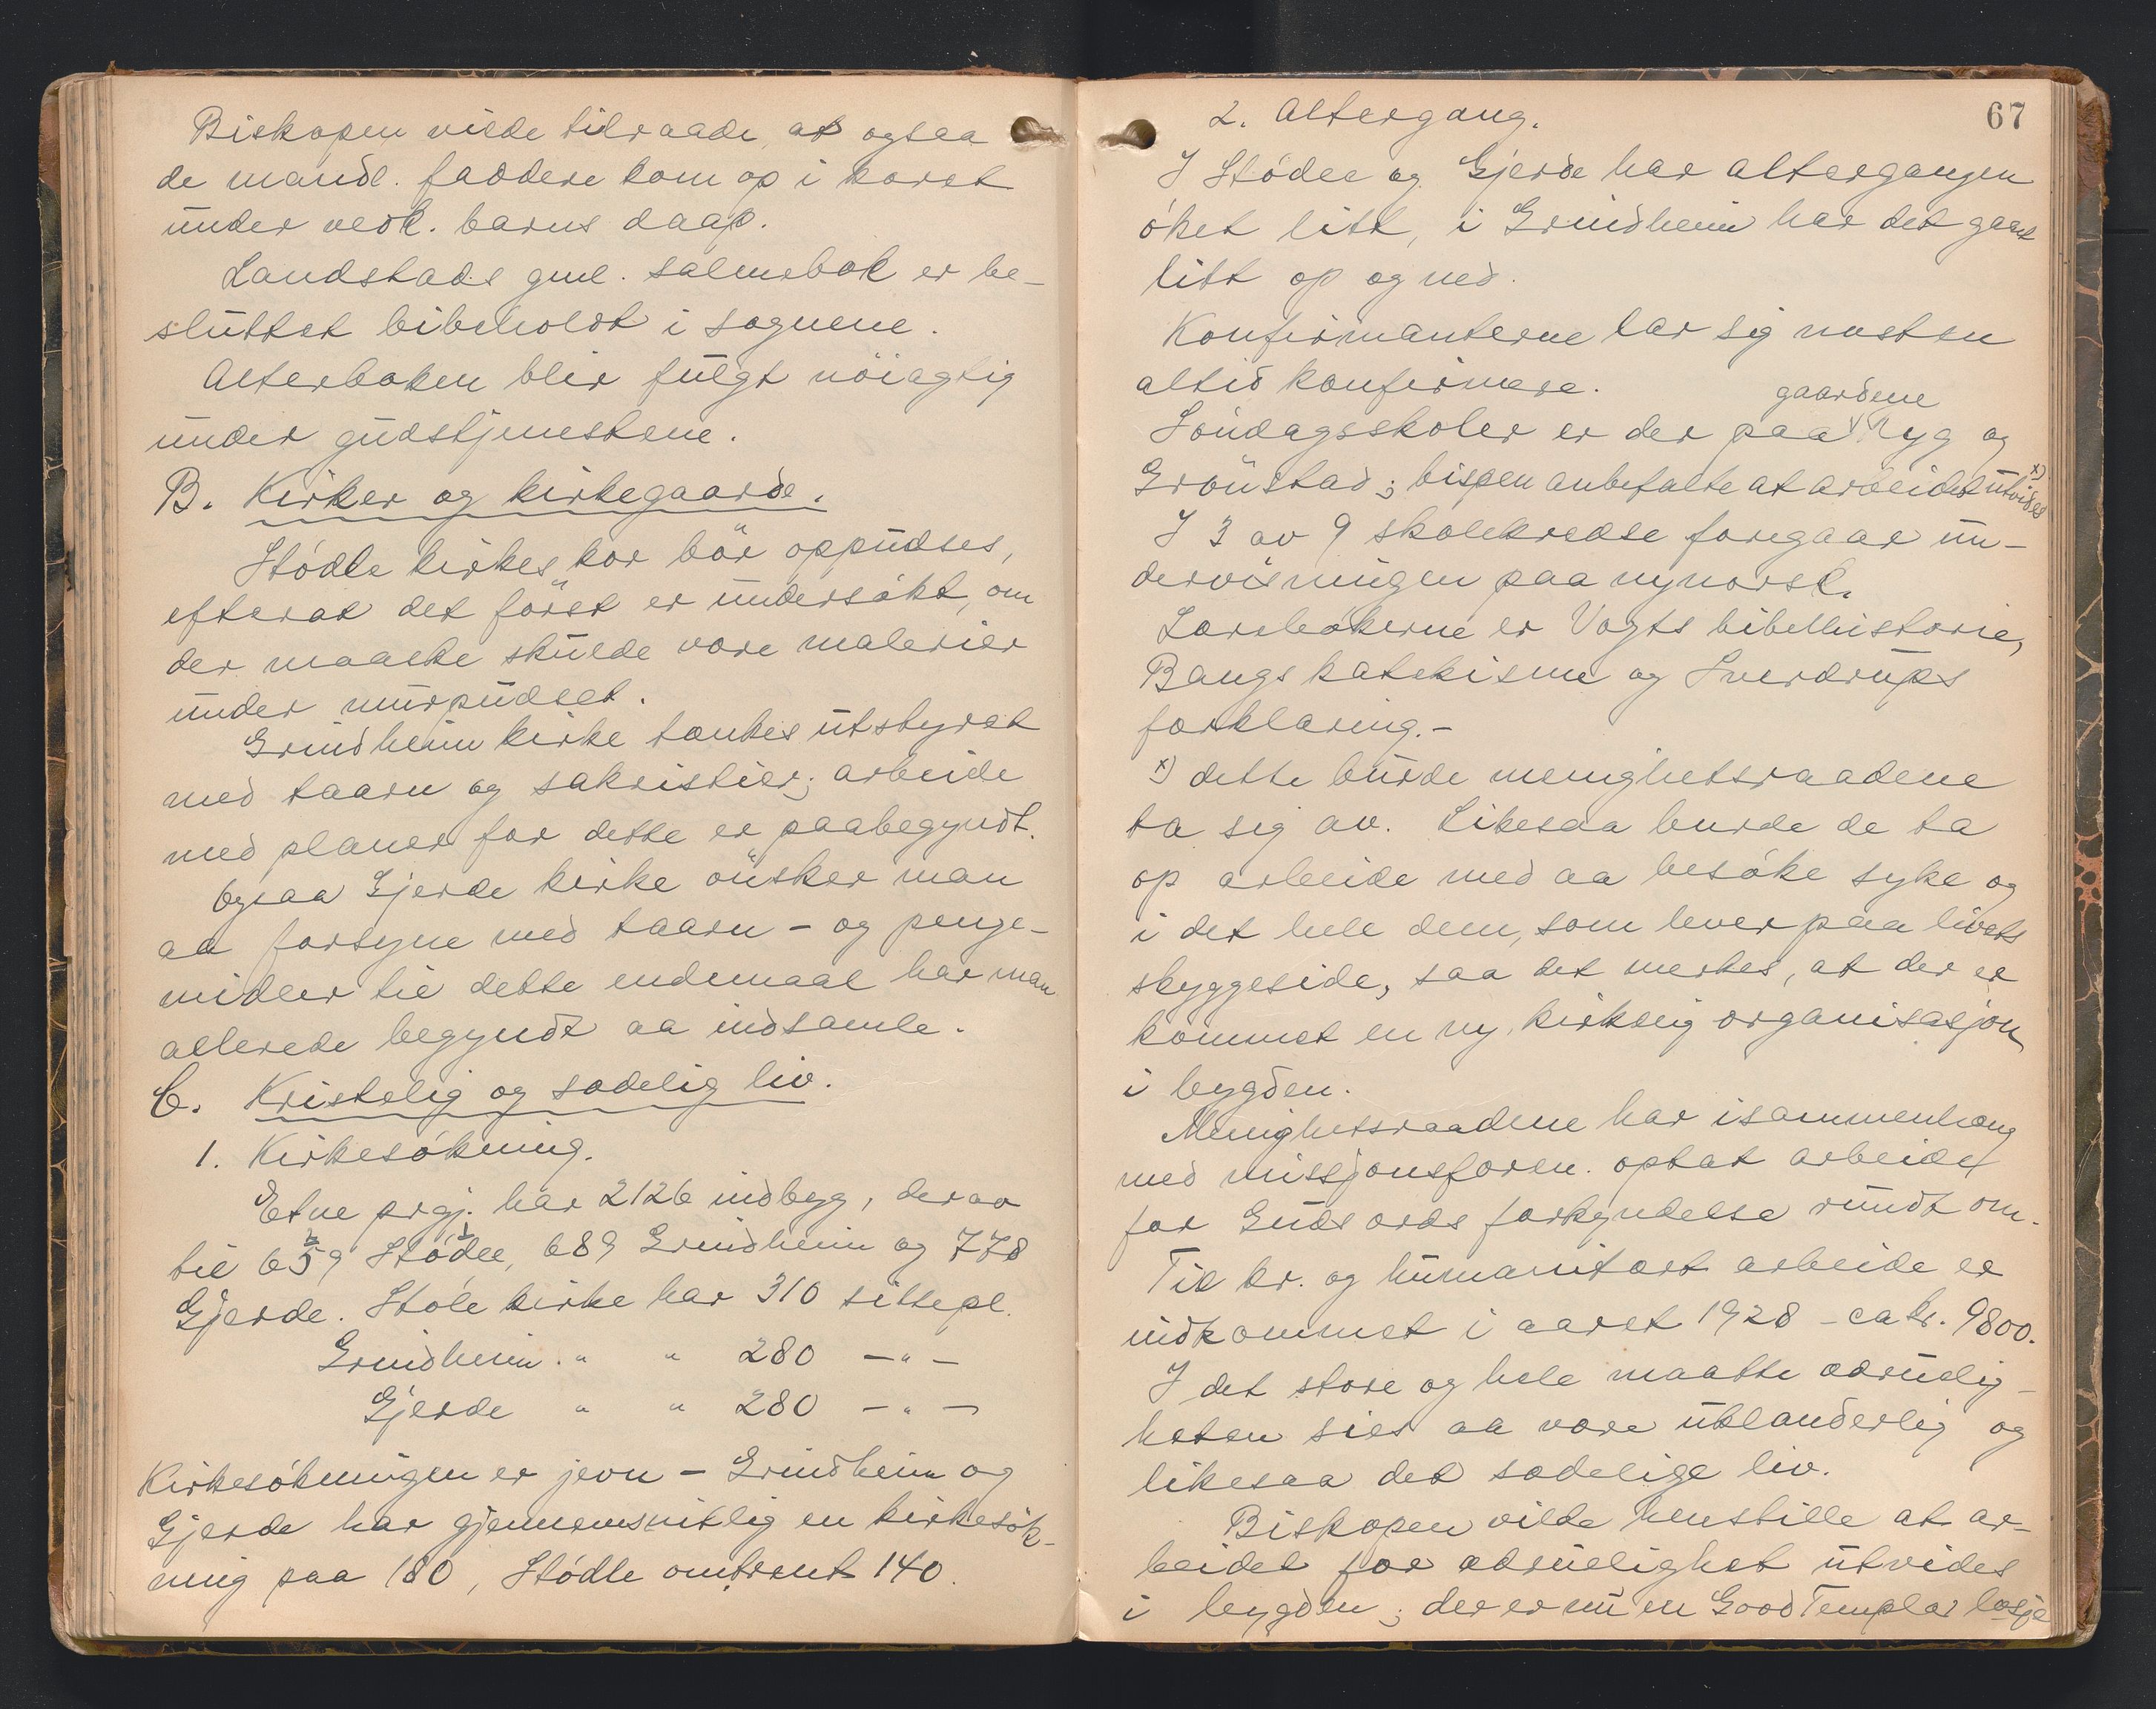 Biskopen vilde tilraade, at ogsaa
de mandl. faddere kom op i koret
under vedk. barns daap.
Landstads gml. salmebok er be-
sluttet bibeholdt i sognene.
Alterboken blir fulgt nöiagtig
under gudstjenestene.
B. Kirker og kirkegaarde.
Stódle kirkes kor bör oppudses,
efterat det först er undersökt, om
der maaske skulde være malerier
under murpudset.
Grindheim kirke tænkes utstyret
med taarn og sakristier; arbeide
med planer for dette er paabegyndt.
Ogsaa Gjerde kirke önsker man
aa forsyne med taarn - og penge-
midler til dette endemaal har man
allerede begyndt aa indsamle.
C. Kristelig og sædelig liv.
1. Kirkesókning.
Etne prgj. har 2126 indbyg, derav
til 659 Stódle, 689 Grindheim og 778
Gjerde. Stóle kirke har 310 sittepl.
Grindheim . " " 280 -"-
Gjerde " " 280 -"-
Kirkesókningen er jevn - Grindheim og
Gjerde har gjennemsnitlig en kirkesök-
ning paa 180, Stódle omtrent 140.
67
2. Altergang.
I Stódle og Gjerde har altergangen
óket litt, i Grindheim har det gaat
litt op og ned.
Konfirmanterne lar sig næsten
altid konfirmere.
gaardene
Söndagsskoler er der paa Ryg og
Grönstad; bispen anbefalte at arbeidet utvides x)
I 3 av 9 skolekredse foregaar un-
dervisningen paa nynorsk.
Lærebökerne er Vogts bibelhistorie,
Bangs katekisme og Sverdrups
forklaring.-
x) dette burde menighetsraadene
ta sig av. Likesaa burde de ta
op arbeide med aa besóke syke og
i det hele dem, som lever paa livets
skyggeside, saa det merkes, at der er
kommet en ny kirkelig organisasjon
i bygden.
Menighetsraadene har i sammenhæng
med missjonsforen. optat arbeidet
for Guds ords forkyndelse rundt om.
Til kr. og humanitært arbeide er
indkommet i aaret 1928 - ca kr. 9800.
I det store og hele maatte ædruelig-
heten sies aa være uklanderlig og
likesaa det sædelige liv.
Biskopen vilde henstille at ar-
beidet for ædruelighet utvides
i bygden; der er nu en Good Templar losje